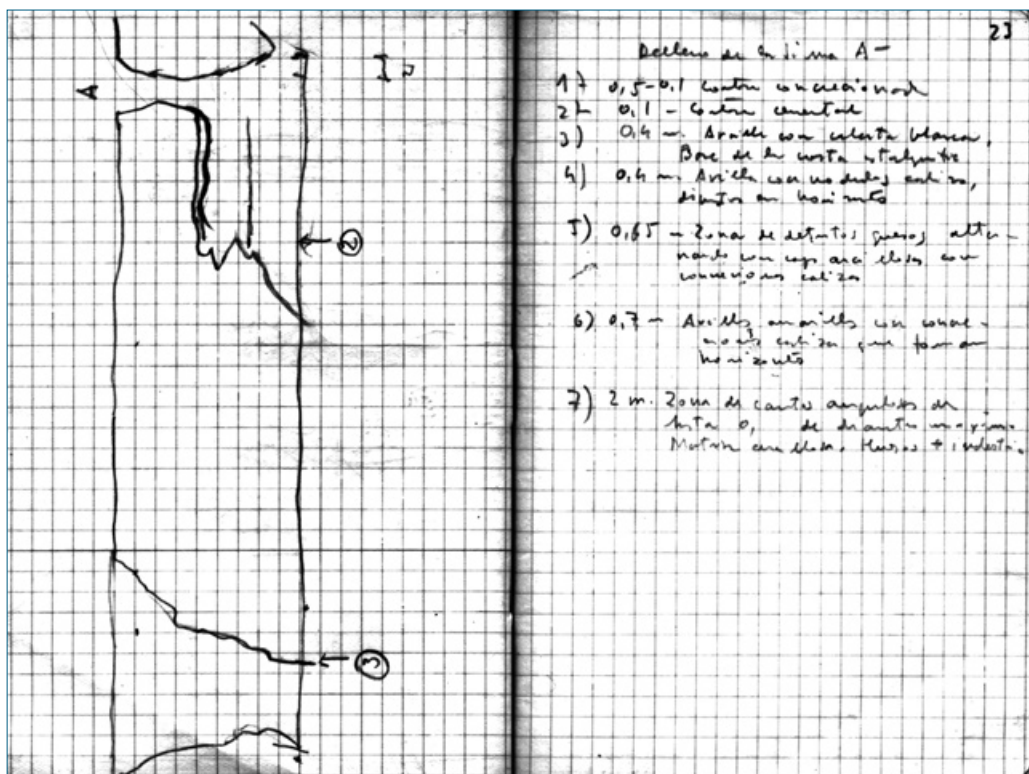 A
2
3
23
Relleno de la sima A -
1) 0,5-0,1 Costra concrecionada
2) 0,1 - Costra
3) 0,4 m. Arcilla con costra blanca,
Base de la costra
4) 0,4 m. Arcilla con nodulos calizos,
en horizonte
5) 0,65 - Zona de detritos gruesos alter-
nando con capas arcillosas con
concreciones calizas
6) 0,7 - Arcillas amarillas con concre-
ciones calizas que forman
horizonte
7) 2 m. Zona de cantos angulosos de
hasta 0, de diametro maximo
Matriz arcillosa. Huesos + industria.